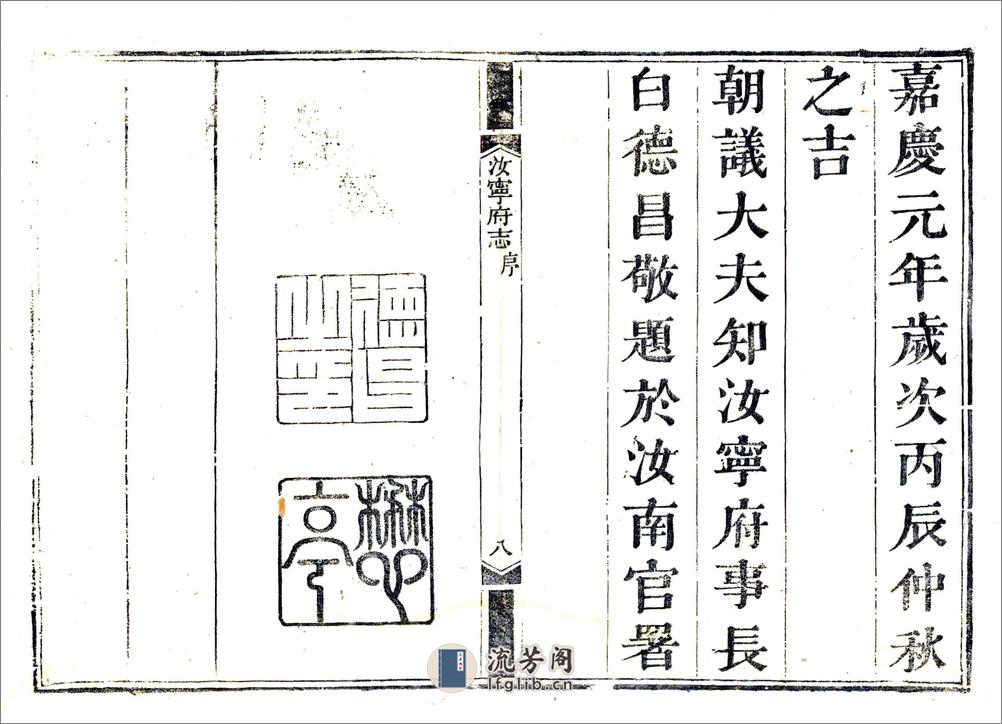 嘉慶元年歲次丙辰仲秋
之吉
朝議大夫知汝寧府事長
白德昌敬題於汝南官署
汝寧府志
序
八
德昌
之章
懋亭
流芳阁
lfglib.cn